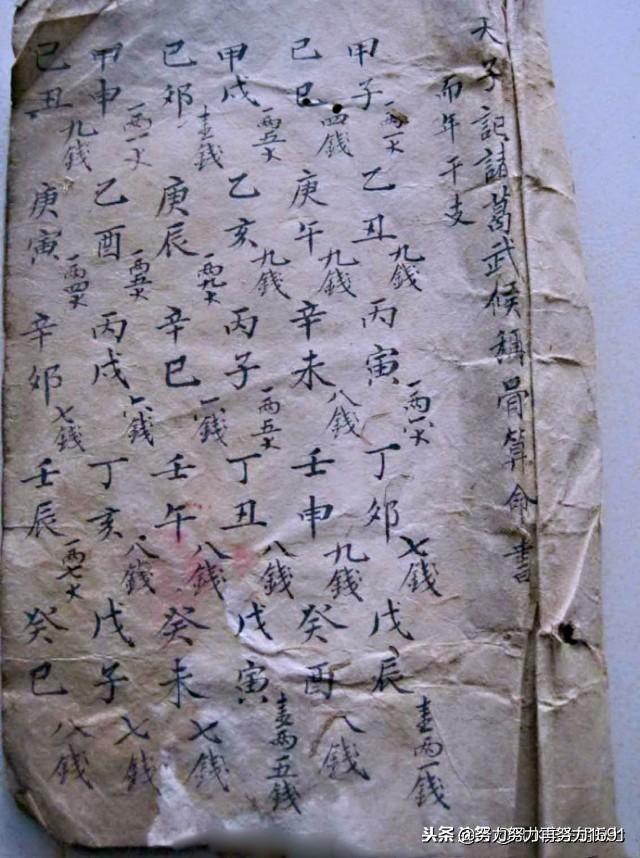 天子記諸葛武候稱骨算命書
而年干支
甲子 一両一 乙丑 九錢 丙寅 一両 丁卯 七錢 戊辰 壹両一錢
己巳 四錢 庚午 九錢 辛未 八錢 壬申 九錢 癸酉 八錢
甲戌 一両五 乙亥 九錢 丙子 一両五 丁丑 八錢 戊寅 壹両五錢
己卯 壹錢 庚辰 一両九 辛巳 錢 壬午 八錢 癸未 七錢
甲申 一両一 乙酉 一両五 丙戌 錢 丁亥 八錢 戊子 七錢
己丑 九錢 庚寅 一両四 辛卯 七錢 壬辰 一両七 癸巳 八錢
头条 @努力努力再努力